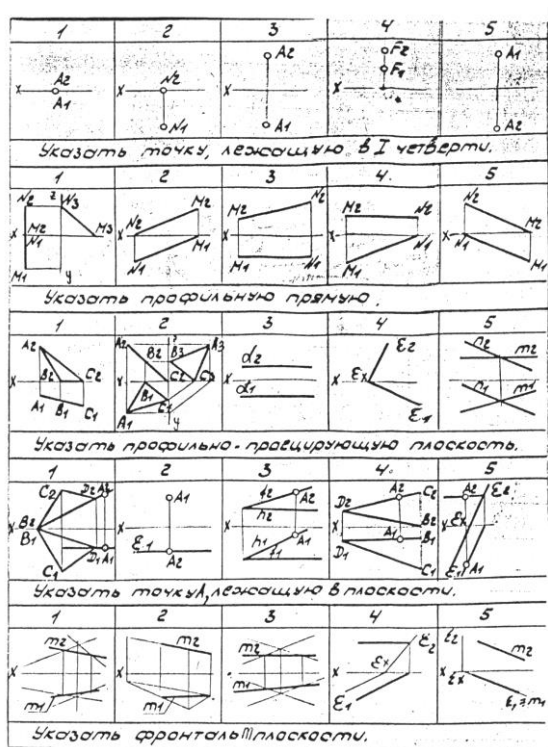 1 2 3 4 5
X A2 A1
X N2 N1
X A2 A1
X F2 F1
X A1 A2
Указать точку, лежащую в I четверти.
1 2 3 4 5
N2 z N3 X M2 N1 M3 M1 y
N2 M2 X N1 M1
M2 N2 X M1 N1
M2 N2 X M1 N1
N2 M2 X N1 M1
Указать профильную прямую.
1 2 3 4 5
A2 X B2 C2 A1 B1 C1
A2 B2 B3 A3 X C2 C3 B1 C1 A1 y
α2 X α1
ε2 X εx ε1
n2 m2 X n1 m1
Указать профильно-проецирующую плоскость.
1 2 3 4 5
C2 D2 A2 X B2 B1 D1 A1 C1
A1 X ε1 A2
f2 A2 X h2 h1 A1 f1
A2 C2 D2 X B2 A1 B1 D1 C1
A2 ε2 X εx ε1 A1
Указать точку A, лежащую в плоскости.
1 2 3 4 5
m2 X m1
m2 X m1
m2 X m1
ε2 X εx ε1
ε2 m2 X εx ε1≡m1
Указать фронталь m плоскости.